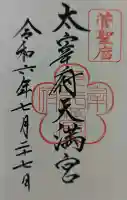 菅聖庿
太宰府天満宮
令和六年七月二十七日